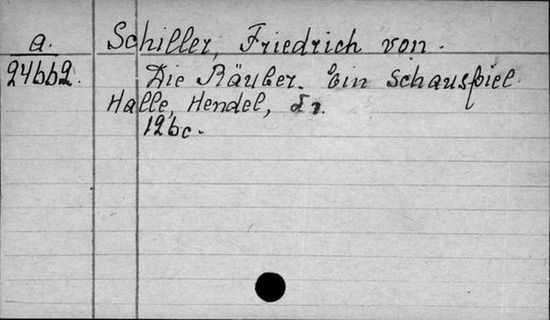 a.
24662.
Schiller, Friedrich von.
Die Räuber. Ein Schauspiel
Halle, Hendel,
126c.